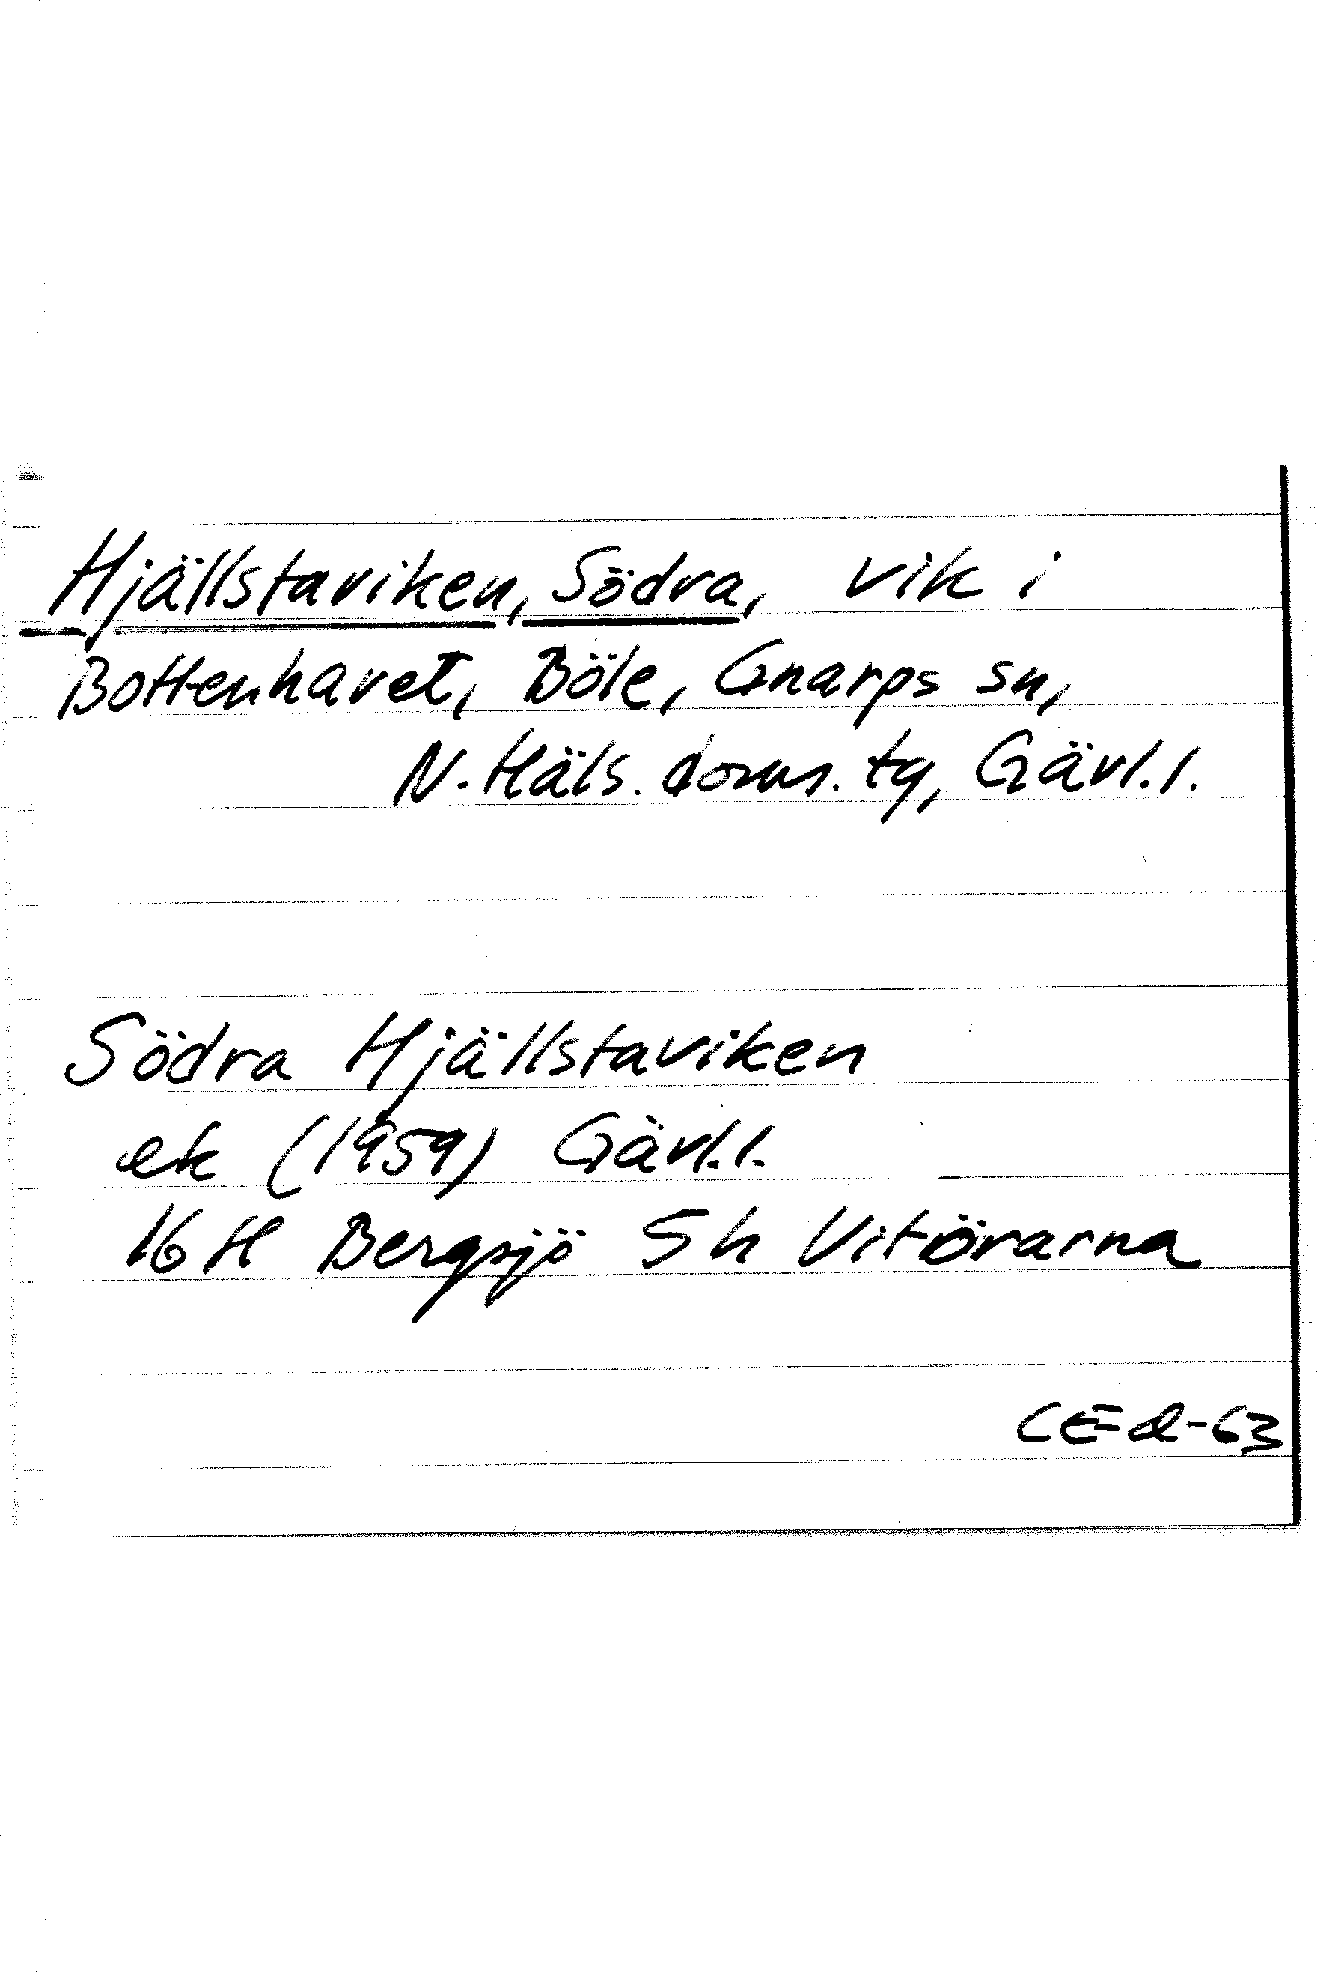 Hjällstaviken, Södra, vik i
Bottenhavet, Böle, Gnarps sn,
N. Häls. doms. tg, Gävl. l.
Södra Hjällstaviken
ek (1959) Gävl. l.
16 H Bergsjö 5 h Vitörarna
CEd-63